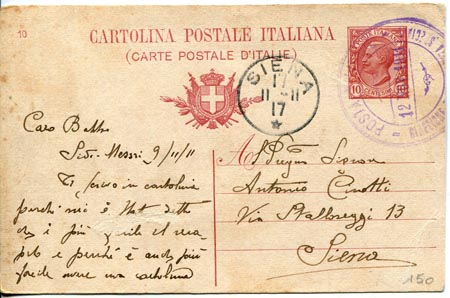 10
CARTOLINA POSTALE ITALIANA
(CARTE POSTALE D'ITALIE)
POSTE ITALIANE
10 CENTESIMI 10
SIENA
17
11-11
17
12
POSTA
Caro Babbo
Sidi-Messri 9/11/11
Ti scrivo in cartolina
perchè mi è stat detto
che è più facile
e perchè è anche più
facile avere una cartolina
A
Al Signor
Antonio
Via Stalloreggi 13
Siena
150